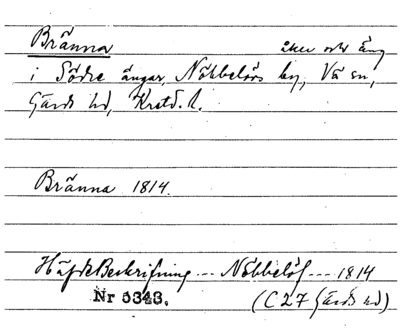 Bränna åker och äng
i Södre ängar, Nöbbelövs by, Vä sn,
Gärds hd, Krstd. l.
Bränna 1814.
Häfde Beskrifning --- Nöbbelöf --- 1814
Nr 5343. (C 27 Gärds hd)